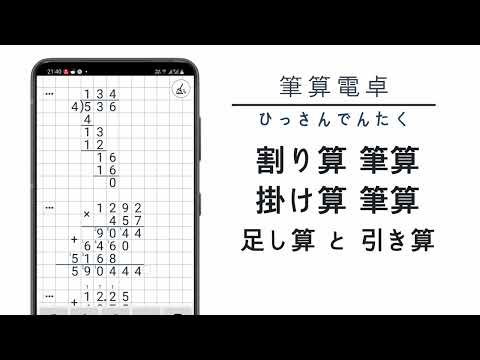 21:40
134
4)536
4
13
12
16
16
0
1292
× 457
9044
+ 6460
5168
590444
12.25
+
筆算電卓
ひっさんでんたく
割り算 筆算
掛け算 筆算
足し算 と 引き算